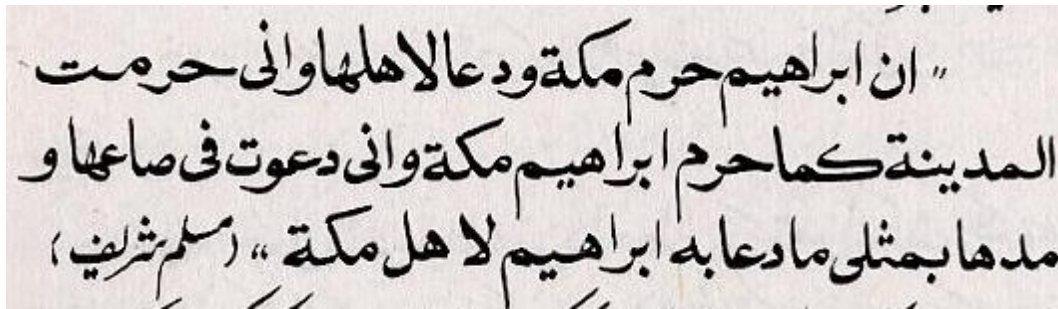 " ان ابراهيم حرم مكة ودعالاهلها وانى حرمت
المدينة كما حرم ابراهيم مكة وانى دعوت فى صاعها و
مدها بمثلى مادعابه ابراهيم لاهل مكة " (مسلم شریف)